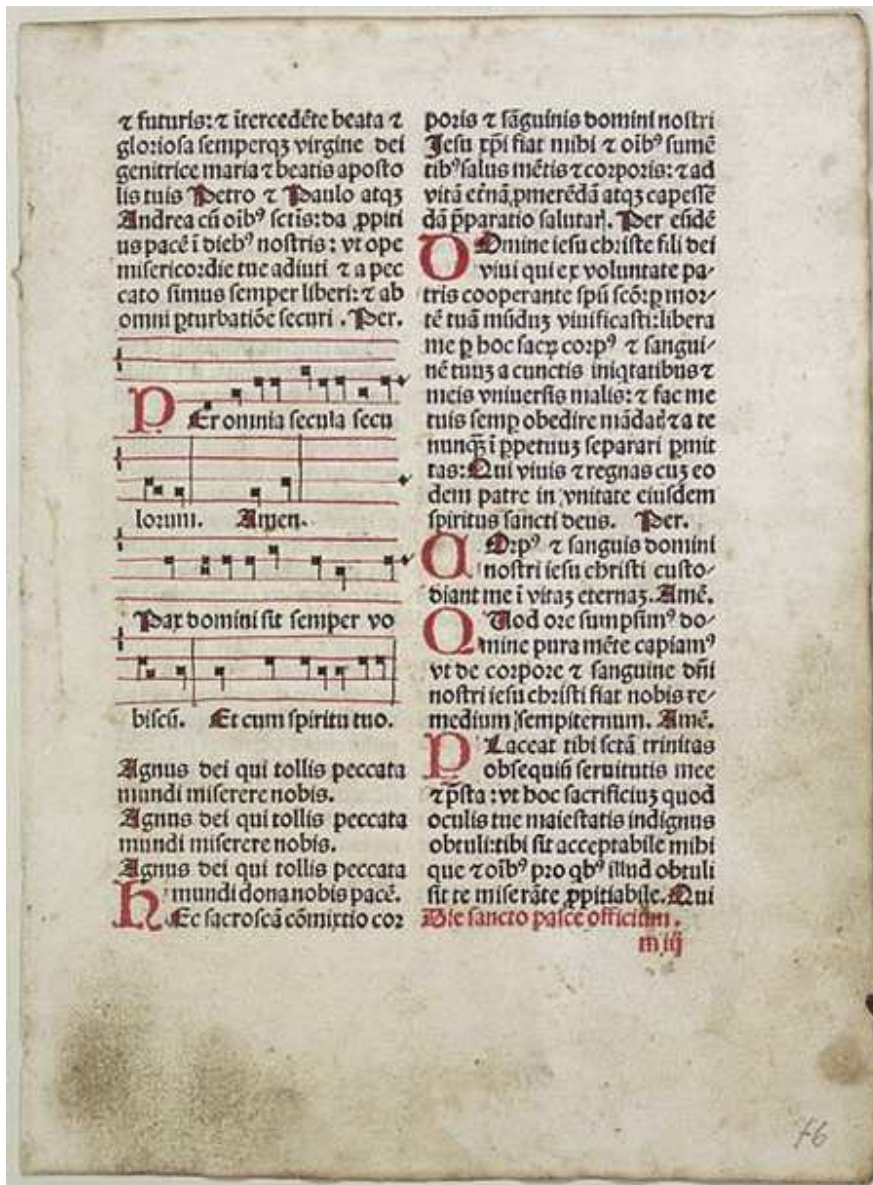 ⁊ futuris: ⁊ ītercedēte beata ⁊
gloriosa semperqꝫ virgine dei
genitrice maria ⁊ beatis aposto
lis tuis Petro ⁊ Paulo atqꝫ
Andrea cū oībꝰ sctīs: da ꝓpiti
us pacē ī diebꝰ nostris: vt ope
misericordie tue adiuti ⁊ a pec
cato simus semper liberi: ⁊ ab
omni ꝑturbatiōe securi. Per.
PEr omnia secula secu
lorum. Amen.
Pax domini sit semper vo
biscū. Et cum spiritu tuo.
Agnus dei qui tollis peccata
mundi miserere nobis.
Agnus dei qui tollis peccata
mundi miserere nobis.
Agnus dei qui tollis peccata
mundi dona nobis pacē.
HEc sacroscā cōmixtio cor
poris ⁊ sāguinis domini nostri
Jesu xp̄i fiat mihi ⁊ oībꝰ sumē
tibꝰ salus mētis ⁊ corporis: ⁊ ad
vitā et̄nā ꝓmerēdā atqꝫ capessē
dā p̄paratio salutarꝭ. Per eūdē
DOmine iesu christe fili dei
viui qui ex voluntate pa⸗
tris cooperante spū scō: ꝑ mor⸗
tē tuā mūduꝫ viuificasti: libera
me ꝑ hoc sacꝝ corpꝰ ⁊ sangui⸗
nē tuuꝫ a cunctis iniqtatibus ⁊
meis vniuersis malis: ⁊ fac me
tuis semꝑ obedire mādatꝭ ⁊ a te
nunqꝫ̄ ī ꝑpetuuꝫ separari ꝑmit
tas: Qui viuis ⁊ regnas cuꝫ eo
dem patre in vnitate eiusdem
spiritus sancti deus. Per.
COrpꝰ ⁊ sanguis domini
nostri iesu christi custo⸗
diant me ī vitaꝫ eternaꝫ. Amē.
QUod ore sumpsimꝰ do⸗
mine pura mēte capiamꝰ
vt de corpore ⁊ sanguine dn̄i
nostri iesu christi fiat nobis re⸗
medium sempiternum. Amē.
PLaceat tibi sctā trinitas
obsequiū seruitutis mee
⁊ p̄sta: vt hoc sacrificiuꝫ quod
oculis tue maiestatis indignus
obtuli: tibi sit acceptabile mihi
que ⁊ oībꝰ pro qbꝰ illud obtuli
sit te miserāte ꝓpitiabile. Qui
Die sancto pasce officium.
m iij
f6